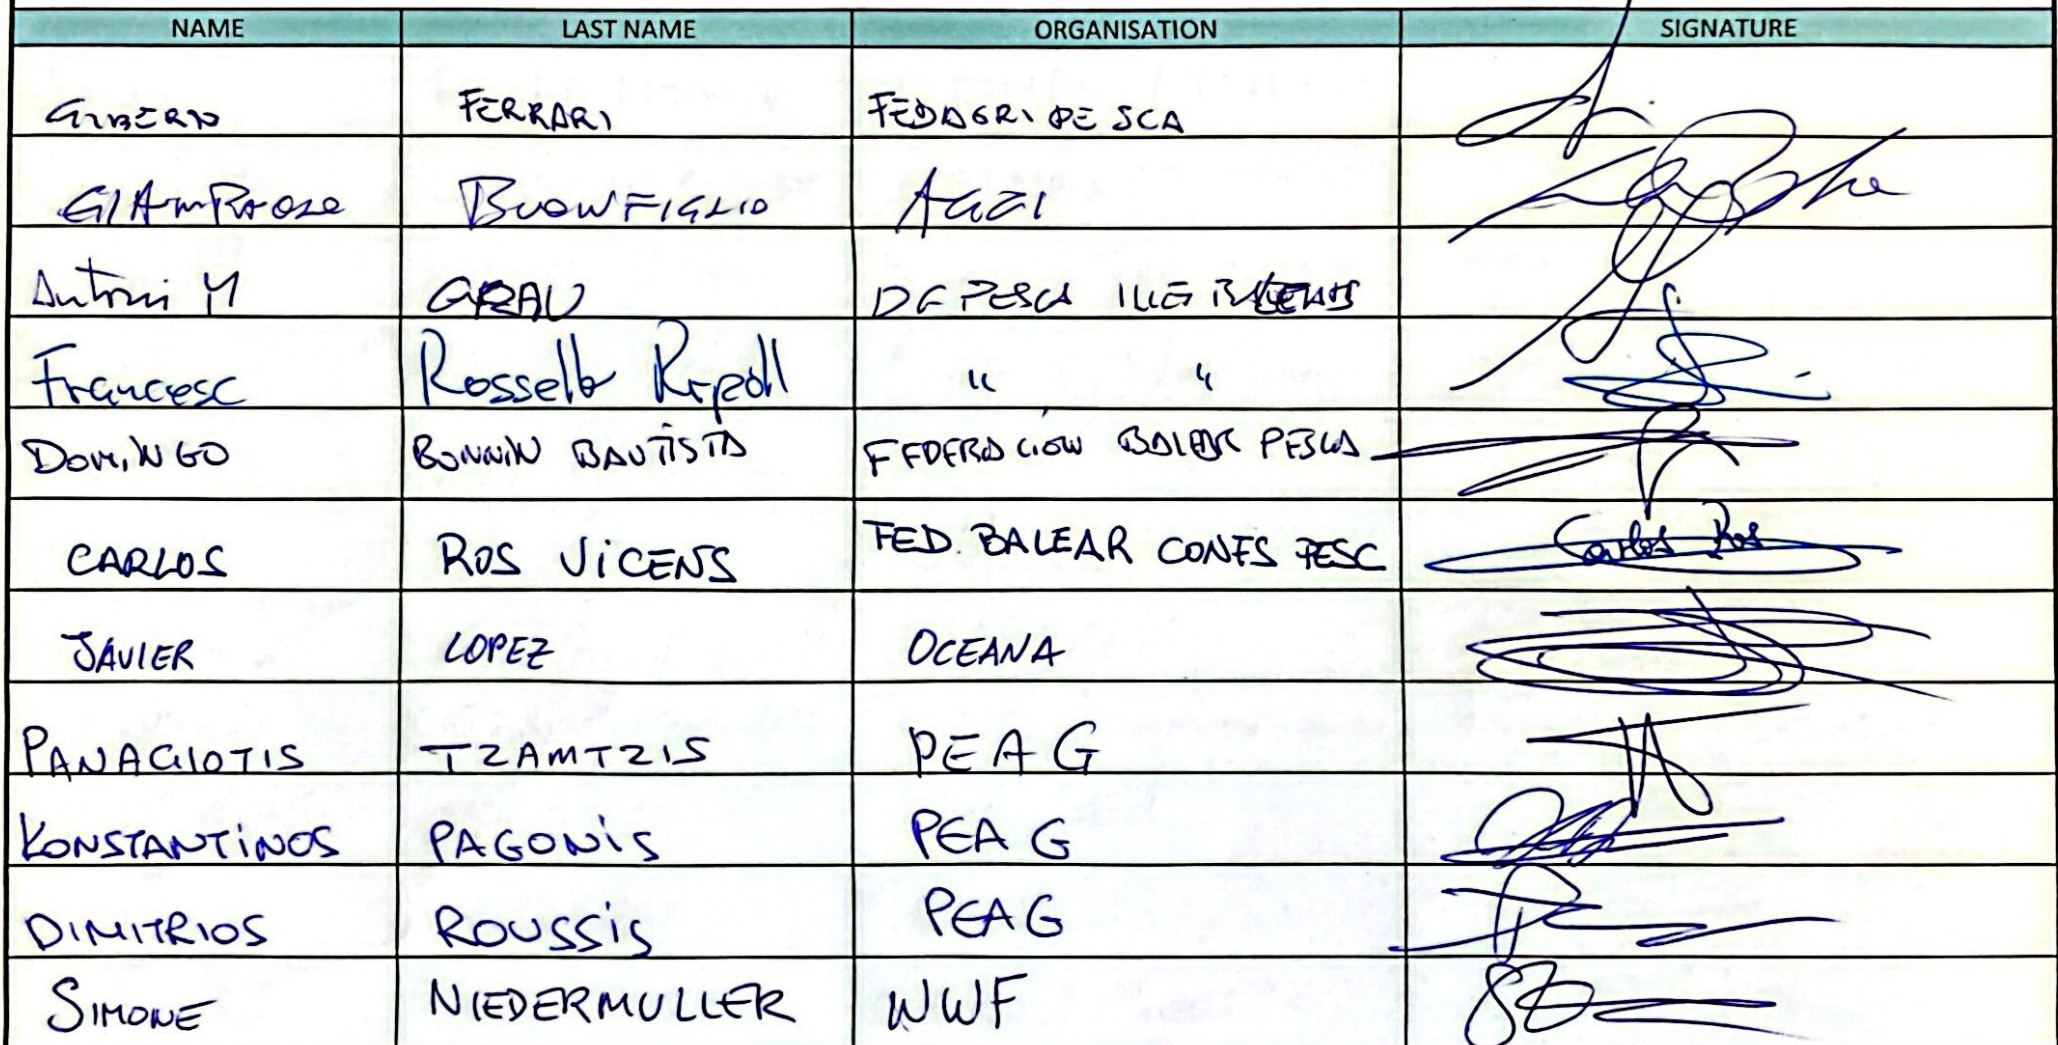 NAME LAST NAME ORGANISATION SIGNATURE
GILBERTO FERRARI FEDAGRIPESCA
GIAMPAOLO BUONFIGLIO AGCI
Antoni M GRAU DG PESCA ILLES BALEARS
Francesc Rosselló Ripoll " "
DOMINGO BONNIN BAUTISTA FEDERACION BALEAR PESCA
CARLOS ROS VICENS FED. BALEAR CONFS PESC Carlos Ros
JAVIER LOPEZ OCEANA
PANAGIOTIS TZAMTZIS PEAG
KONSTANTINOS PAGONIS PEAG
DIMITRIOS ROUSSIS PEAG
SIMONE NIEDERMULLER WWF